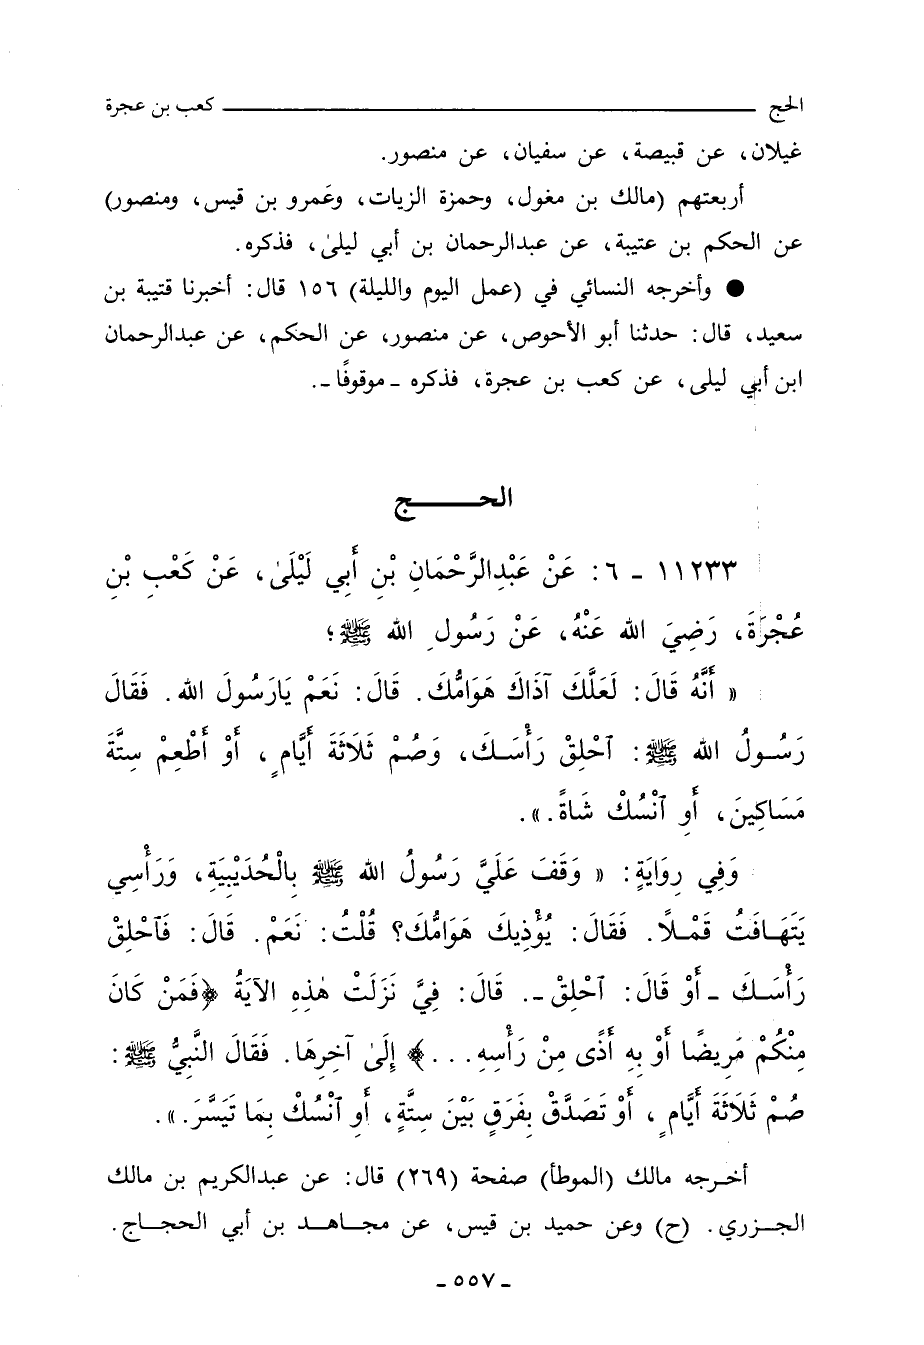 الحج ـــــــــــــــــــــــــــــــــ كعب بن عجرة
غيلان، عن قبيصة، عن سفيان، عن منصور.
أربعتهم (مالك بن مغول، وحمزة الزيات، وعَمرو بن قيس، ومنصور)
عن الحكم بن عتيبة، عن عبدالرحمان بن أبي ليلىٰ، فذكره.
● وأخرجه النسائي في (عمل اليوم والليلة) ١٥٦ قال: أخبرنا قتيبة بن
سعيد، قال: حدثنا أبو الأحوص، عن منصور، عن الحكم، عن عبدالرحمان
ابن أبي ليلى، عن كعب بن عجرة، فذكره ـ موقوفًا ـ.
الحـــــج
١١٢٣٣ ـ ٦: عَنْ عَبْدِالرَّحْمَانِ بْنِ أَبِي لَيْلَىٰ، عَنْ كَعْبِ بْنِ
عُجْرَةَ، رَضِيَ الله عَنْهُ، عَنْ رَسُولِ الله ﷺ؛
« أَنَّهُ قَالَ: لَعَلَّكَ آذَاكَ هَوَامُّكَ. قَالَ: نَعَمْ يَارَسُولَ الله. فَقَالَ
رَسُولُ الله ﷺ: ٱحْلِقْ رَأْسَكَ، وَصُمْ ثَلَاثَةَ أَيَّامٍ، أَوْ أَطْعِمْ سِتَّةَ
مَسَاكِينَ، أَوِ ٱنْسُكْ شَاةً.».
وَفِي رِوَايَةٍ: « وَقَفَ عَلَيَّ رَسُولُ الله ﷺ بِالْحُدَيْبِيَةِ، وَرَأْسِي
يَتَهَافَتُ قَمْلًا. فَقَالَ: يُؤْذِيكَ هَوَامُّكَ؟ قُلْتُ: نَعَمْ. قَالَ: فَٱحْلِقْ
رَأْسَكَ ـ أَوْ قَالَ: ٱحْلِقْ ـ. قَالَ: فِيَّ نَزَلَتْ هٰذِهِ الآيَةُ ﴿فَمَنْ كَانَ
مِنْكُمْ مَرِيضًا أَوْ بِهِ أَذًى مِنْ رَأْسِهِ...﴾ إِلَىٰ آخِرِهَا. فَقَالَ النَّبِيُّ ﷺ:
صُمْ ثَلَاثَةَ أَيَّامٍ، أَوْ تَصَدَّقْ بِفَرَقٍ بَيْنَ سِتَّةٍ، أَوِ ٱنْسُكْ بِمَا تَيَسَّرَ.».
أخرجه مالك (الموطأ) صفحة (٢٦٩) قال: عن عبدالكريم بن مالك
الجزري. (ح) وعن حميد بن قيس، عن مجاهد بن أبي الحجاج.
ـ ٥٥٧ ـ